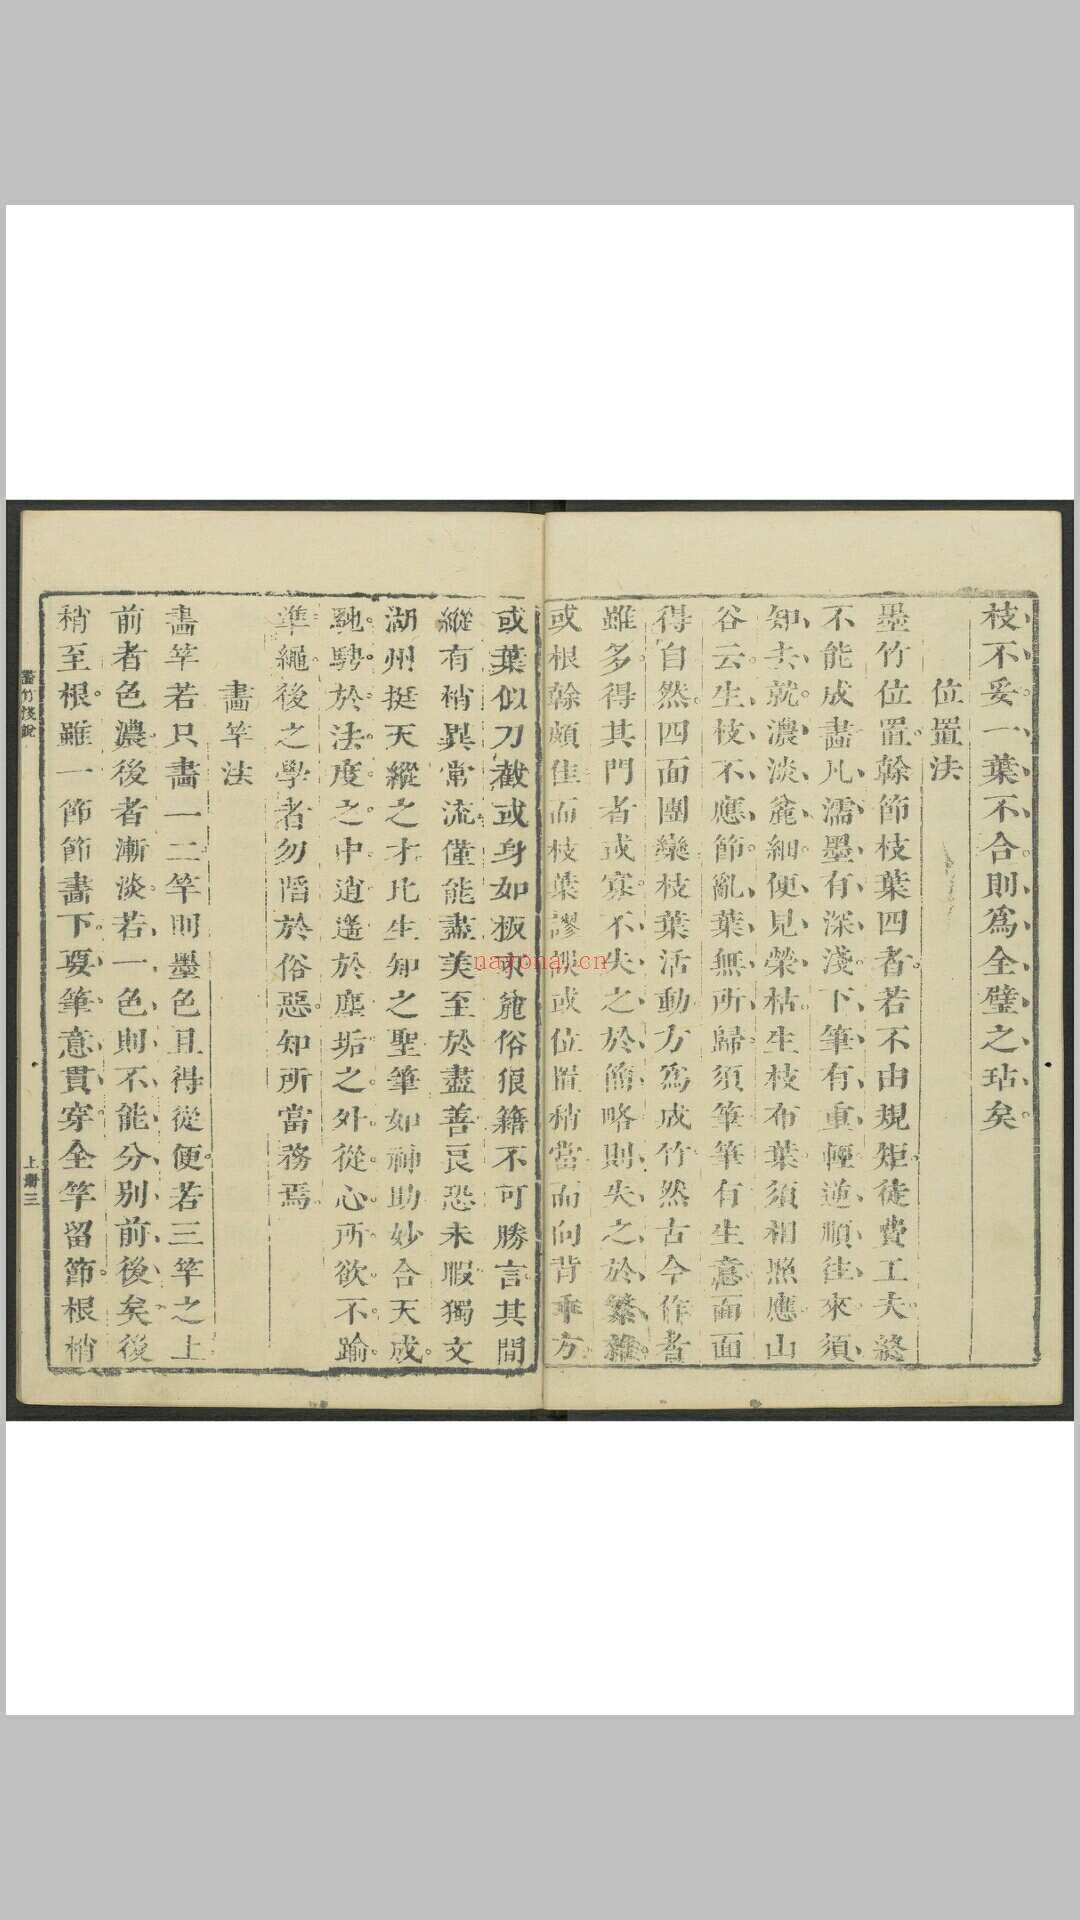 枝不妥一葉不合則爲全璧之玷矣
位置法
墨竹位置榦節枝葉四者若不由規矩徒費工夫終
不能成畫凡濡墨有深淺下筆有重輕逆順往來須
知去就濃淡麄細便見榮枯生枝布葉須相照應山
谷云生枝不應節亂葉無所歸須筆筆有生意面面
得自然四面團欒枝葉活動方爲成竹然古今作者
雖多得其門者或寡不失之於簡略則失之於繁雜
或根榦頗佳而枝葉謬誤或位置稍當而向背乖方
或葉似刀截或身如板束麄俗狼籍不可勝言其間
縱有稍異常流僅能盡美至於盡善良恐未暇獨文
湖州挺天縱之才比生知之聖筆如神助妙合天成
馳騁於法度之中逍遙於塵垢之外從心所欲不踰
準繩後之學者勿陷於俗惡知所當務焉
畫竿法
畫竿若只畫一二竿則墨色且得從便若三竿之上
前者色濃後者漸淡若一色則不能分別前後矣後
稍至根雖一節節畫下要筆意貫穿全竿留節根梢
畫竹淺說
上册三
nayona.cn